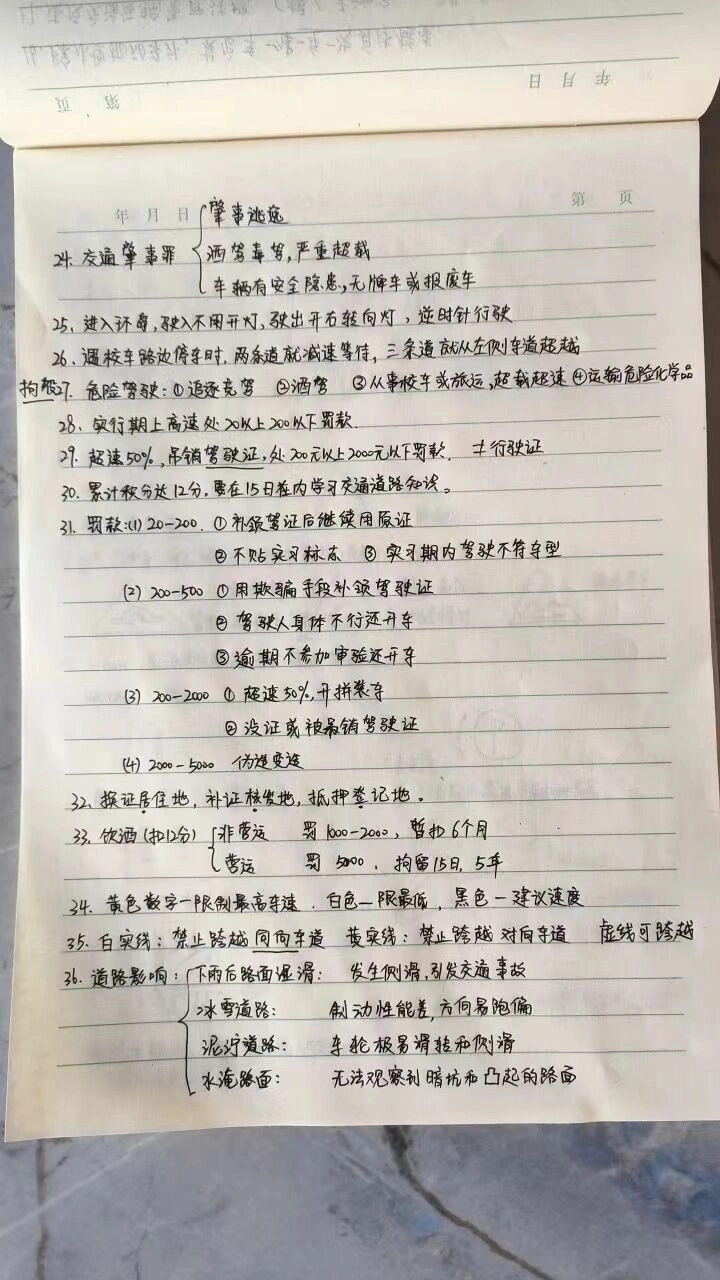 年 月 日
第 页
年 月 日
第 页
肇事逃逸
24. 交通肇事罪 酒驾毒驾,严重超载
车辆有安全隐患,无牌车或报废车
25. 进入环岛,驶入不用开灯,驶出开右转向灯,逆时针行驶
26. 遇校车路边停车时,两条道就减速等待,三条道就从左侧车道超越
拘役27. 危险驾驶:①追逐竞驾 ②酒驾 ③从事校车或旅运,超载超速 ④运输危险化学品
28. 实行期上高速处20以上200以下罚款.
29. 超速50%,吊销驾驶证,处200元以上2000元以下罚款. ≠行驶证
30. 累计积分达12分,要在15日在内学习交通道路知识。
31. 罚款:(1) 20-200. ①补领驾证后继续用原证
②不贴实习标志 ③实习期内驾驶不符车型
(2) 200-500 ①用欺骗手段补领驾驶证
②驾驶人身体不行还开车
③逾期不参加审验还开车
(3) 200-2000 ①超速50%,开拼装车
②没证或被吊销驾驶证
(4) 2000-5000 伪造变造
32. 换证居住地,补证核发地,抵押登记地。
33. 饮酒(扣12分) 非营运 罚1000-2000,暂扣6个月
营运 罚5000.拘留15日,5年
34. 黄色数字—限制最高车速.白色—限最低,黑色—建议速度
35. 白实线:禁止跨越同向车道 黄实线:禁止跨越对向车道 虚线可跨越
36. 道路影响: 下雨后路面湿滑: 发生侧滑,引发交通事故
冰雪道路: 制动性能差,方向易跑偏
泥泞道路: 车轮极易滑转和侧滑
水淹路面: 无法观察到暗坑和凸起的路面